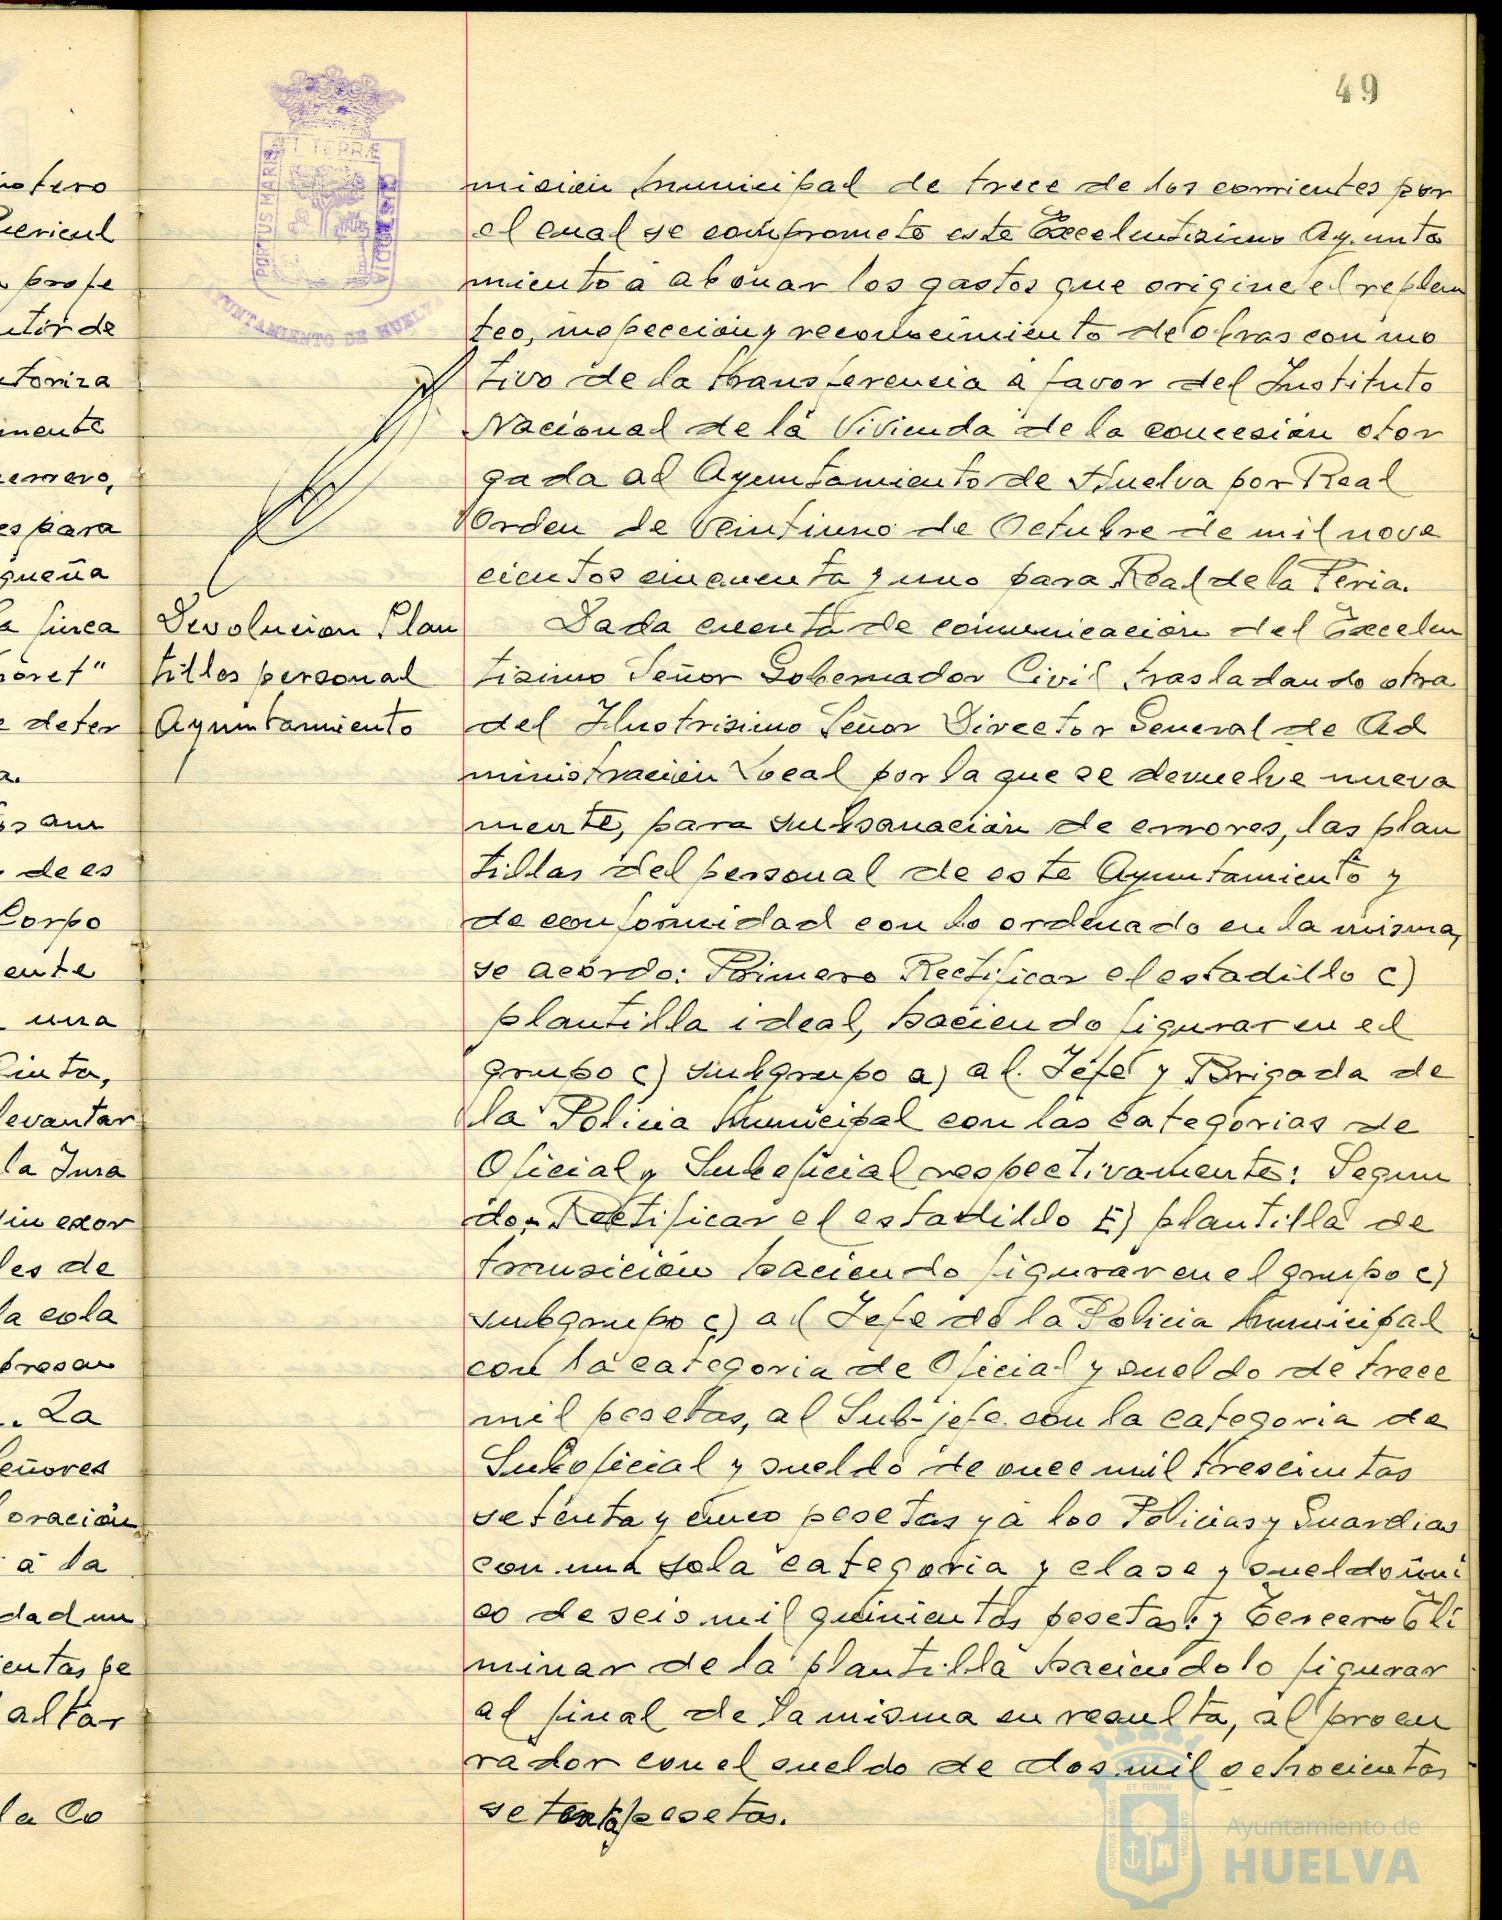 49
ET TERRÆ
PORTUS MARIS
CUSTODIA
AYUNTAMIENTO DE HUELVA
prope
utor de
mente
es para
queña
a finca
e deter
a.
de es
Corpo
ente
una
levantar
la Jura
les de
la cola
La
eñores
oración
á la
dad un
entas pe
altar
la Co
misión municipal de trece de los corrientes por
el cual se compromete este Excelentisimo Ayunta
miento á abonar los gastos que origine el replan
teo, inspeccion y reconocimiento de obras con mo
tivo de la transferencia á favor del Instituto
Nacional de la Vivienda de la concesión otor
gada al Ayuntamiento de Huelva por Real
Orden de veintiuno de Octubre de mil nove
cientos cincuenta y uno para Real de la Feria.
Devolucion Plan
tillas personal
Ayuntamiento
Dada cuenta de comunicación del Excelen
tisimo Señor Gobernador Civil trasladando otra
del Ilustrisimo Señor Director General de Ad
ministración Local por la que se devuelve nueva
mente, para subsanación de errores, las plan
tillas del personal de este Ayuntamiento y
de conformidad con lo ordenado en la misma,
se acordo: Primero Rectificar el estadillo c)
plantilla ideal, haciendo figurar en el
grupo c) subgrupo a) al Jefe y Brigada de
la Policia Municipal con las categorias de
Oficial y Suboficial respectivamente: Segun
do.- Rectificar el estadillo E) plantilla de
transición haciendo figurar en el grupo c)
subgrupo c) al Jefe de la Policia Municipal
con la categoria de Oficial y sueldo de trece
mil pesetas, al Sub-jefe con la categoria de
Suboficial y sueldo de once mil trescientas
setenta y cinco pesetas y á los Policias y Guardias
con una sola categoria y clase y sueldo úni
co de seis mil quinientas pesetas: y Tercero Eli
minar de la plantilla haciendolo figurar
al final de la misma en resulta, al procu
rador con el sueldo de dos mil ochocientas
setenta pesetas.
Ayuntamiento de
HUELVA